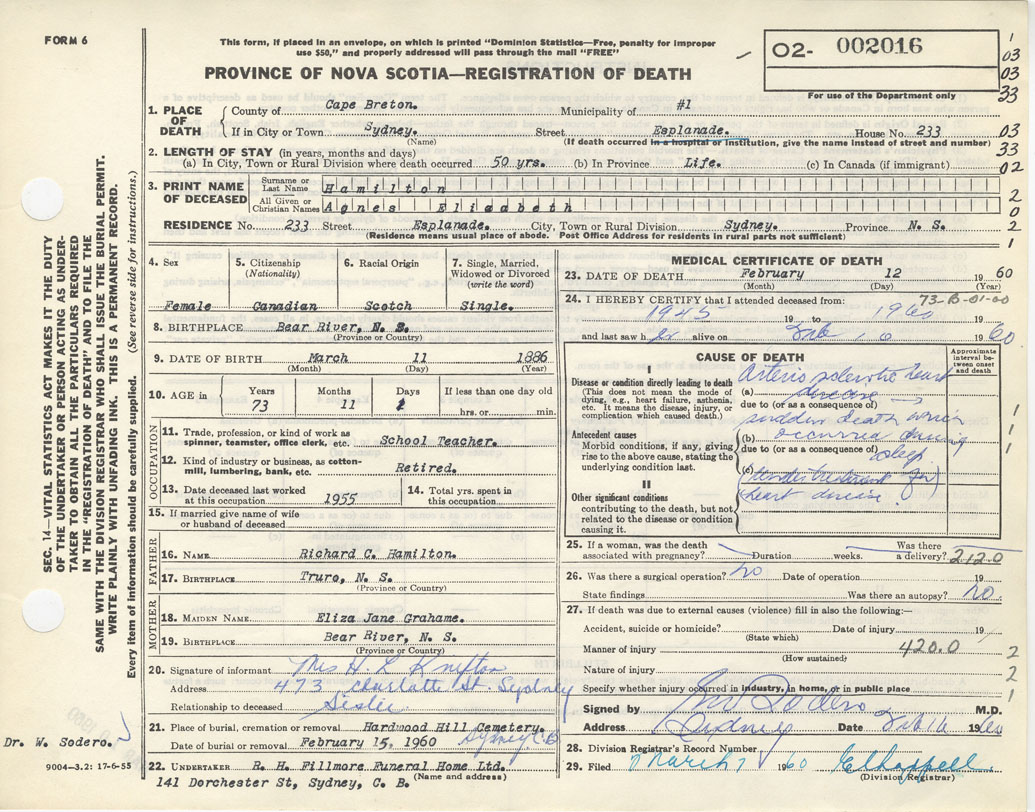 FORM 6
This form, if placed in an envelope, on which is printed "Dominion Statistics—Free, penalty for improper
use $50," and properly addressed will pass through the mail "FREE"
PROVINCE OF NOVA SCOTIA—REGISTRATION OF DEATH
02- 002016
For use of the Department only
1 03 03 33
1. PLACE OF DEATH
County of Cape Breton. Municipality of #1
If in City or Town Sydney. Street Esplanade. House No. 233
(Name) (If death occurred in a hospital or institution, give the name instead of street and number)
03 33 02
2. LENGTH OF STAY (in years, months and days)
(a) In City, Town or Rural Division where death occurred 50 yrs. (b) In Province Life. (c) In Canada (if immigrant)
3. PRINT NAME OF DECEASED
Surname or Last Name Hamilton
All Given or Christian Names Agnes Elizabeth
2 0 2 1
RESIDENCE No. 233 Street Esplanade. City, Town or Rural Division Sydney. Province N. S.
(Residence means usual place of abode. Post Office Address for residents in rural parts not sufficient)
4. Sex Female
5. Citizenship (Nationality) Canadian
6. Racial Origin Scotch
7. Single, Married, Widowed or Divorced (write the word) Single.
8. BIRTHPLACE Bear River, N. S.
(Province or Country)
9. DATE OF BIRTH March 11 1886
(Month) (Day) (Year)
10. AGE in Years 73 Months 11 Days If less than one day old hrs. or min.
OCCUPATION
11. Trade, profession, or kind of work as spinner, teamster, office clerk, etc. School Teacher.
12. Kind of industry or business, as cotton-mill, lumbering, bank, etc. Retired.
13. Date deceased last worked at this occupation 1955
14. Total yrs. spent in this occupation
15. If married give name of wife or husband of deceased
FATHER
16. NAME Richard C. Hamilton.
17. BIRTHPLACE Truro, N. S.
(Province or Country)
MOTHER
18. MAIDEN NAME Eliza Jane Grahame.
19. BIRTHPLACE Bear River, N. S.
(Province or Country)
20. Signature of informant Mrs H. L
Address 473 Charlotte St. Sydney
Relationship to deceased Sister
21. Place of burial, cremation or removal Hardwood Hill Cemetery.
Sydney, C.B.
Date of burial or removal February 15, 1960
22. UNDERTAKER R. H. Fillmore Funeral Home Ltd.
(Name and address)
141 Dorchester St, Sydney, C. B.
MEDICAL CERTIFICATE OF DEATH
23. DATE OF DEATH February 12 1960
(Month) (Day) (Year)
24. I HEREBY CERTIFY that I attended deceased from:
73-B-01-00
1945 19 to 1960 19
and last saw h er alive on Feb 10 1960
CAUSE OF DEATH
Approximate interval between onset and death
I
Disease or condition directly leading to death
(This does not mean the mode of dying, e.g., heart failure, asthenia, etc. It means the disease, injury, or complication which caused death.)
(a) Arterio sclerotic heart disease
due to (or as a consequence of)
Antecedent causes
Morbid conditions, if any, giving rise to the above cause, stating the underlying condition last.
sudden death which
(b) occurred during
due to (or as a consequence of) sleep
(c) (Under treatment for
heart disease)
II
Other significant conditions contributing to the death, but not related to the disease or condition causing it.
1 1 1
25. If a woman, was the death associated with pregnancy? Duration weeks. Was there a delivery? 2120
26. Was there a surgical operation? no Date of operation 19
State findings Was there an autopsy? no.
27. If death was due to external causes (violence) fill in also the following:—
Accident, suicide or homicide? Date of injury 19
(State which)
Manner of injury 420.0
(How sustained)
Nature of injury
Specify whether injury occurred in industry, in home, or in public place
2 2 1
Signed by Sodero M.D.
Address Sydney Date Feb 16 1960
28. Division Registrar's Record Number
29. Filed March 7 1960
(Division Registrar)
SEC. 14—VITAL STATISTICS ACT MAKES IT THE DUTY
OF THE UNDERTAKER OR PERSON ACTING AS UNDER-
TAKER TO OBTAIN ALL THE PARTICULARS REQUIRED
IN THE "REGISTRATION OF DEATH" AND TO FILE THE
SAME WITH THE DIVISION REGISTRAR WHO SHALL ISSUE THE BURIAL PERMIT.
WRITE PLAINLY WITH UNFADING INK. THIS IS A PERMANENT RECORD.
Every item of information should be carefully supplied. (See reverse side for instructions.)
Dr. W. Sodero.
9004-3.2: 17-6-55